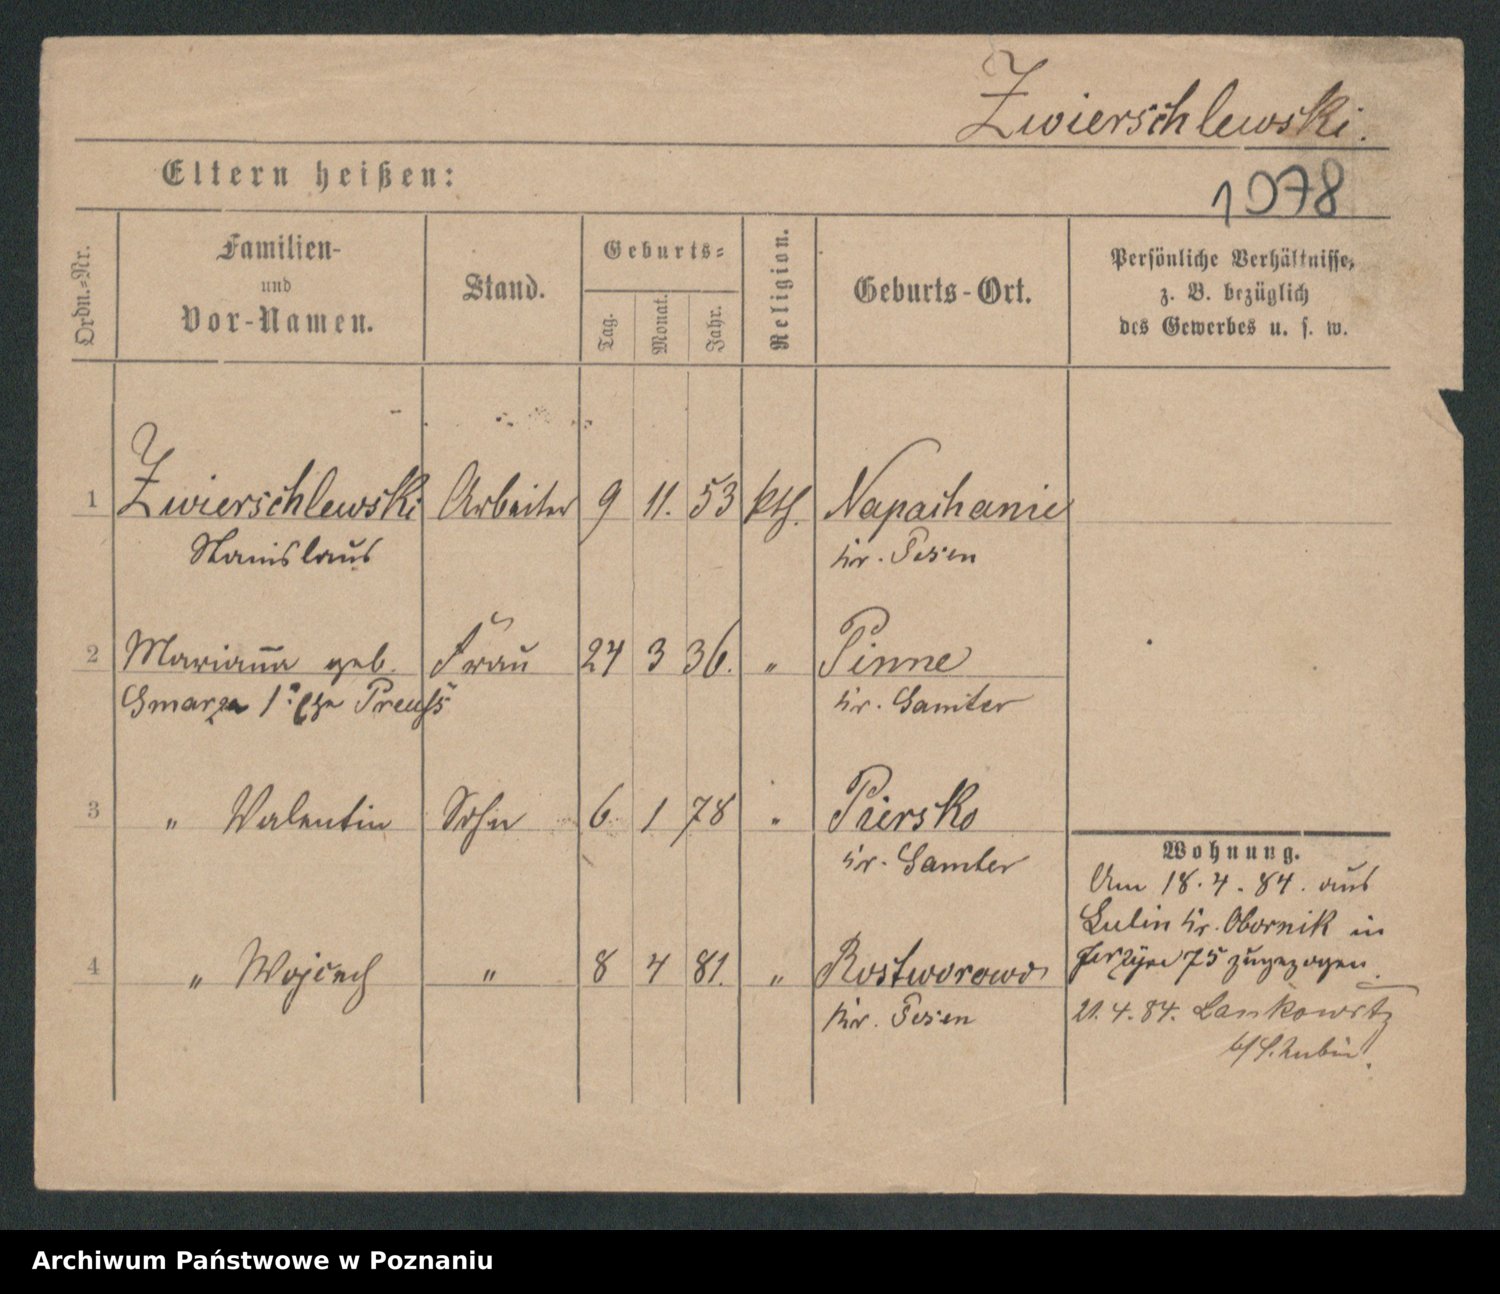 Zwierschlewski.
Eltern heißen:
1078
Ordn.-Nr.
Familien-
und
Vor-Namen.
Stand.
Geburts-
Tag.
Monat.
Jahr.
Religion.
Geburts-Ort.
Persönliche Verhältnisse,
z. B. bezüglich
des Gewerbes u. s. w.
1 Zwierschlewski Arbeiter 9 11. 53 kth. Napachanie
Stanislaus Kr. Posen
2 Marianna geb. Frau 24 3 36. " Pinne
Preuß Kr. Samter
3 " Valentin Sohn 6 1 78 " Piersko
Kr. Samter
4 " Wojcech " 8 4 81. " Rostworowo
Kr. Posen
Wohnung.
Am 18.4.84. aus
Lulin Kr. Obornik in
75 zugezogen.
21.4.84.